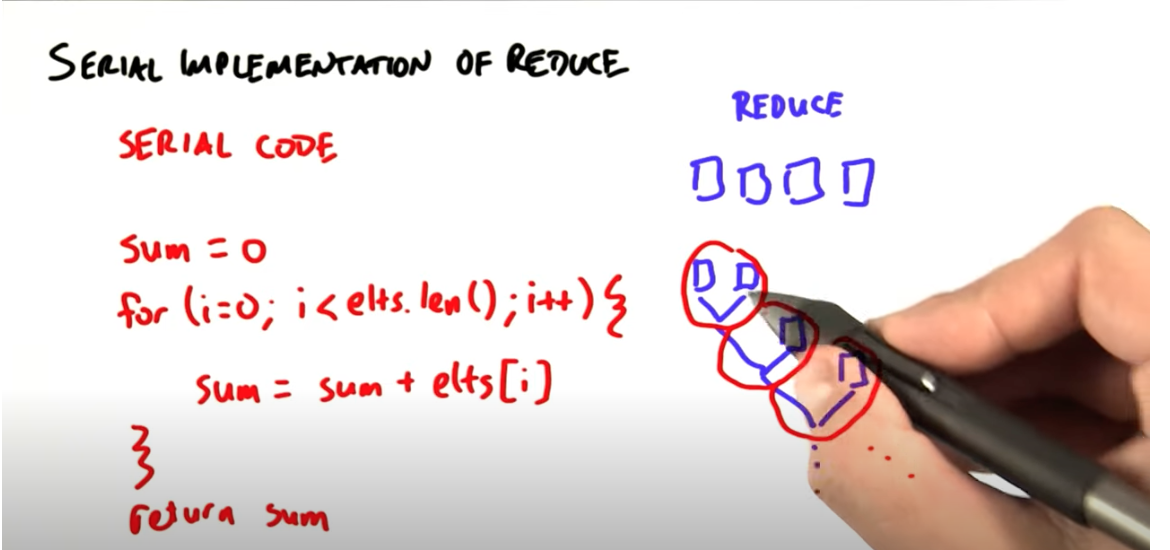 SERIAL IMPLEMENTATION OF REDUCE
REDUCE
SERIAL CODE
sum = 0
for (i=0; i < elts.len(); i++) {
sum = sum + elts[i]
}
return sum